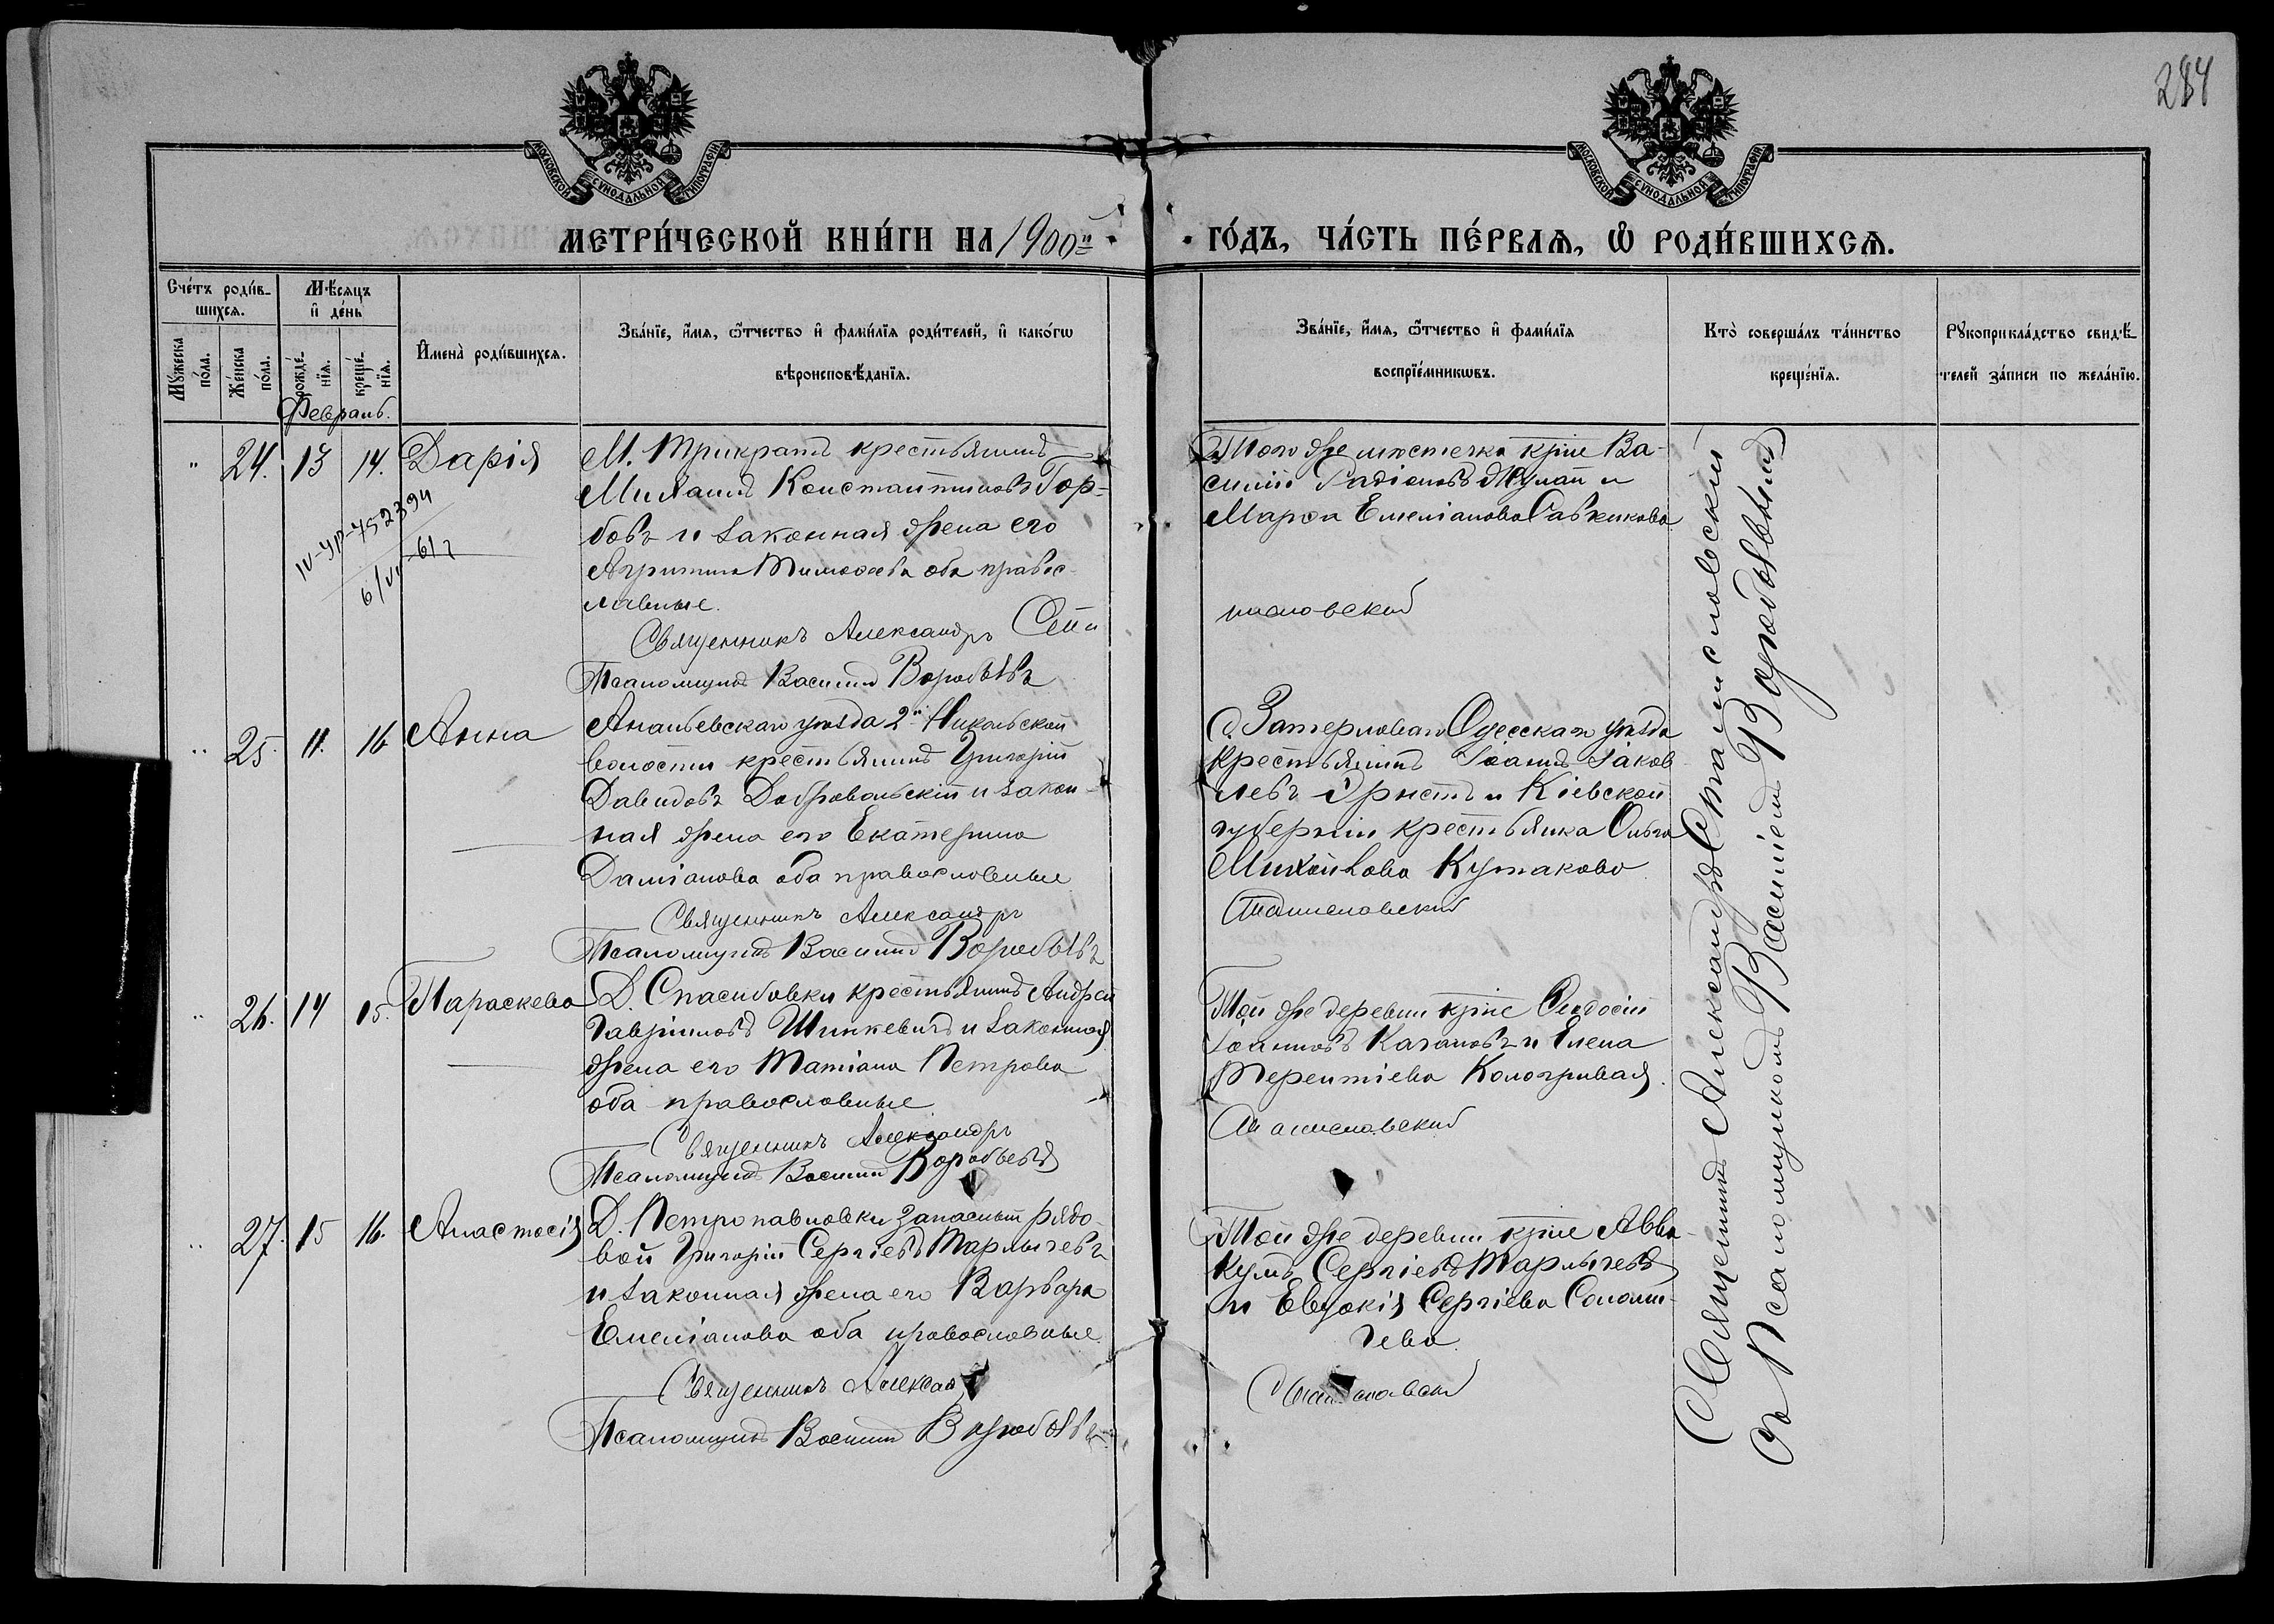 284
МОСКОВСКОЙ СУНОДАЛЬНОЙ ТИПОГРАФІИ
МОСКОВСКОЙ СУНОДАЛЬНОЙ ТИПОГРАФІИ
МЕТРИ́ЧЕСКОЙ КНИ́ГИ НА 1900й
ГО́ДЪ, ЧА́СТЬ ПЕ́РВАѦ, Ѡ҆ РОДИ́ВШИХСѦ.
Сче́тъ роди́в-
шихсѧ.
Мѣ́сѧцъ
и҆ де́нь
Мꙋ́жеска по́ла.
Же́нска по́ла.
рожде́-нїѧ.
креще́-нїѧ.
И҆мена̀ роди́вшихсѧ.
Зва́нїе, и҆́мѧ, ѻ҆́тчество и҆ фами́лїѧ роди́телей, и҆ како́гѡ
вѣроисповѣ́данїѧ.
Зва́нїе, и҆́мѧ, ѻ҆́тчество и҆ фами́лїѧ
воспрїе́мникѡвъ.
Кто̀ соверша́лъ та́инство
креще́нїѧ.
Рꙋкоприкла́дство свидѣ́-
телей за́писи по жела́нїю.
Февраль.
" 24. 13 14. Дарія
М. Трикратъ крестьянинъ
Михаилъ Константиновъ Гор-
бовъ и законная жена его
Агрипина Тимоѳеева оба правос-
лавные.
Священникъ Александръ Ста
Псаломщикъ Василій Воробьевъ
IV-УР-752394
6/VI-61 г
Того же мѣстечка крне Ва-
силій Радіоновъ Жупан и
Марѳа Емеліанова Савченкова
нисловский
" 25. 11. 16 Анна
Ананьевскаго уѣзда 2й Никольской
волости крестьянинъ Григорій
Давидовъ Добровольскій и закон-
ная жена его Екатерина
Даміанова оба православные
Священникъ Александръ
Псаломщикъ Василій Воробьевъ
Одесскаго уѣзда
крестьянинъ Іоаннъ Іаков-
левъ Эрнстъ и Кіевской
губерніи крестьянка Ольга
Михайлова Кутакова
Станиславский
" 26. 14 15. Параскева
Д. Спасибовки крестьянинъ Андрей
Гавріиловъ Шинкевичъ и законная
жена его Татіана Петрова
оба православные
Священникъ Александръ
Псаломщикъ Василій Воробьевъ
Той же деревни крне Ѳеодосій
Іоанновъ Качановъ и Елена
Терентіева Кологривая.
Станиславский
" 27. 15 16. Анастасія
Д. Петропавловки запасный рядо-
вой Григорій Сергіевъ Тарлычевъ
и законная жена его Варвара
Емеліанова оба православные.
Священникъ Алексан
Псаломщикъ Василій Воробьевъ
Той же деревни крне Авва-
кумъ Сергіевъ Тарлычевъ
и Евдокія Сергіева Соломи-
чева.
Станиславский
Священникъ Александръ Станиславскій
съ Псаломщикомъ Василіемъ Воробьевымъ